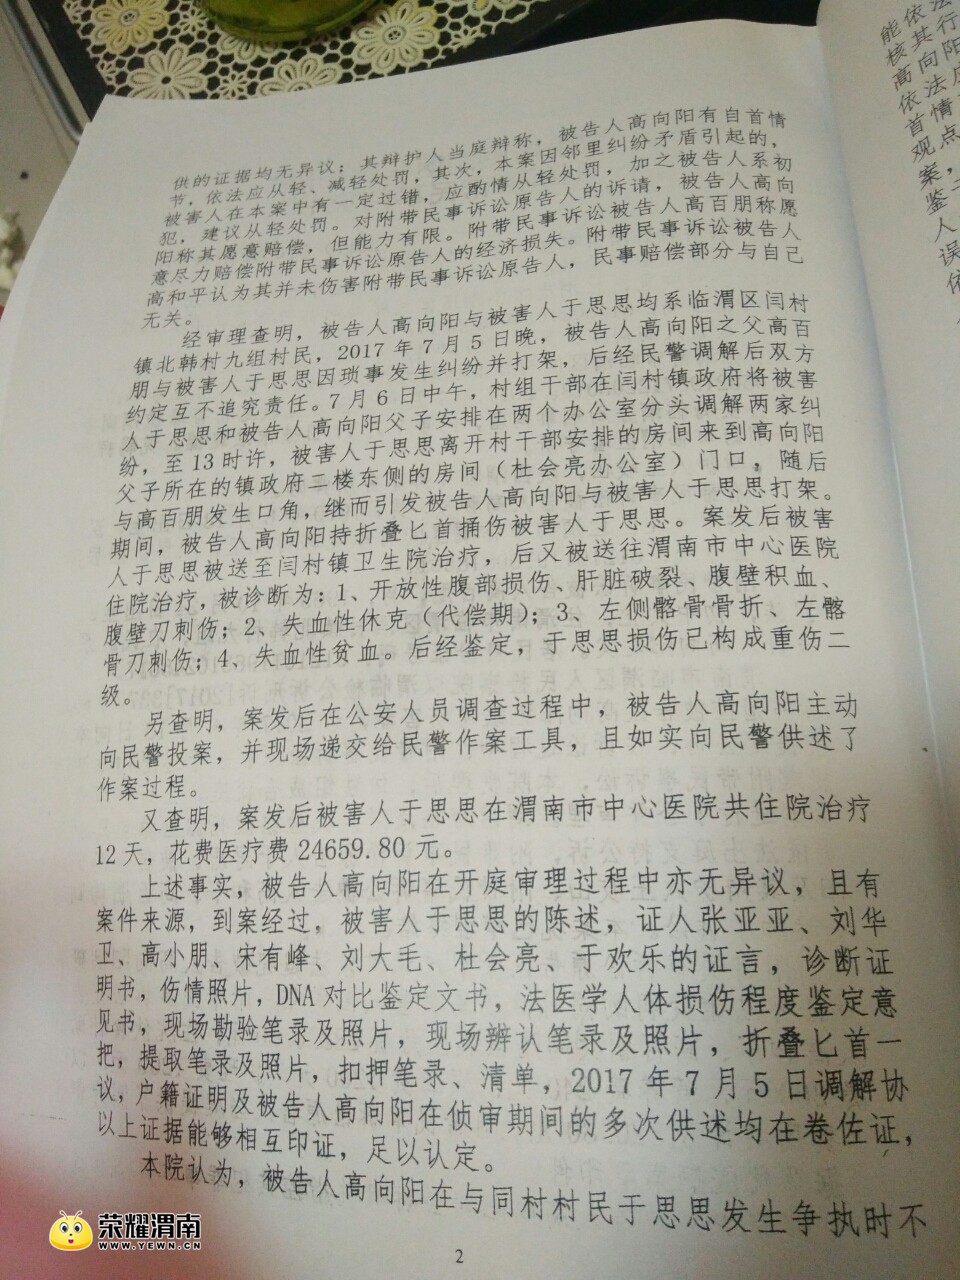 供的证据均无异议；其辩护人当庭辩称，被告人高向阳有自首情
节，依法应从轻、减轻处罚，其次，本案因邻里纠纷矛盾引起的，
被害人在本案中有一定过错，应酌情从轻处罚，加之被告人系初
犯，建议从轻处罚。对附带民事诉讼原告人的诉请，被告人高向
阳称其愿意赔偿，但能力有限。附带民事诉讼被告人高百朋称愿
意尽力赔偿附带民事诉讼原告人的经济损失。附带民事诉讼被告人
高和平认为其并未伤害附带民事诉讼原告人，民事赔偿部分与自己
无关。
经审理查明，被告人高向阳与被害人于思思均系临渭区闫村
镇北韩村九组村民，2017年7月5日晚，被告人高向阳之父高百
朋与被害人于思思因琐事发生纠纷并打架，后经民警调解后双方
约定互不追究责任。7月6日中午，村组干部在闫村镇政府将被害
人于思思和被告人高向阳父子安排在两个办公室分头调解两家纠
纷，至13时许，被害人于思思离开村干部安排的房间来到高向阳
父子所在的镇政府二楼东侧的房间（杜会亮办公室）门口，随后
与高百朋发生口角，继而引发被告人高向阳与被害人于思思打架。
期间，被告人高向阳持折叠匕首捅伤被害人于思思。案发后被害
人于思思被送至闫村镇卫生院治疗，后又被送往渭南市中心医院
住院治疗，被诊断为：1、开放性腹部损伤、肝脏破裂、腹壁积血、
腹壁刀刺伤；2、失血性休克（代偿期）；3、左侧髂骨骨折、左髂
骨刀刺伤；4、失血性贫血。后经鉴定，于思思损伤已构成重伤二
级。
另查明，案发后在公安人员调查过程中，被告人高向阳主动
向民警投案，并现场递交给民警作案工具，且如实向民警供述了
作案过程。
又查明，案发后被害人于思思在渭南市中心医院共住院治疗
12天，花费医疗费24659.80元。
上述事实，被告人高向阳在开庭审理过程中亦无异议，且有
案件来源，到案经过，被害人于思思的陈述，证人张亚亚、刘华
卫、高小朋、宋有峰、刘大毛、杜会亮、于欢乐的证言，诊断证
明书，伤情照片，DNA对比鉴定文书，法医学人体损伤程度鉴定意
见书，现场勘验笔录及照片，现场辨认笔录及照片，折叠匕首一
把，提取笔录及照片，扣押笔录、清单，2017年7月5日调解协
议，户籍证明及被告人高向阳在侦审期间的多次供述均在卷佐证，
以上证据能够相互印证，足以认定。
本院认为，被告人高向阳在与同村村民于思思发生争执时不
2
能依法
核其行
高向阳
依法应
首情
观点
案，
鉴
人
误
依
荣耀渭南
WWW.YEWN.CN